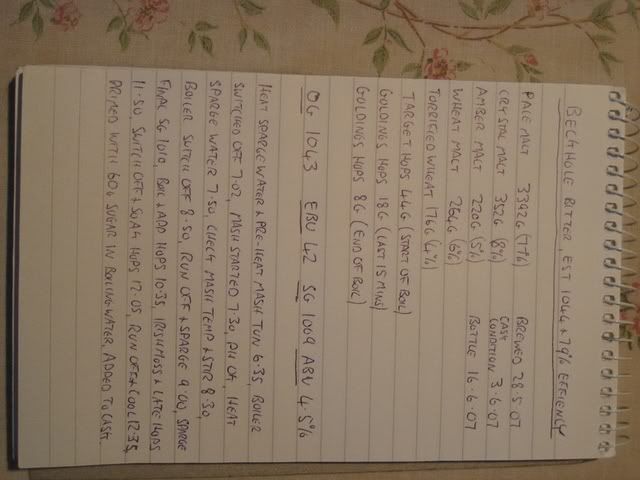 BECKHOLE BITTER, EST 1044 & 79% EFFICIENCY
PALE MALT 3392G (77%) BREWED 28.5.07
CRYSTAL MALT 352G (8%) CASK CONDITION 3.6.07
AMBER MALT 220G (5%) BOTTLE 16.6.07
WHEAT MALT 264G (6%)
TORRIFIED WHEAT 176G (4%)
TARGET HOPS 44G (START OF BOIL)
GOLDINGS HOPS 18G (LAST 15 MINS)
GOLDINGS HOPS 8G (END OF BOIL)
OG 1043 EBU 42 SG 1009 ABV 4.5%
HEAT SPARGE WATER & PRE-HEAT MASH TUN 6.35, BOILER
SWITCHED OFF 7.02, MASH STARTED 7.30, PH OK, HEAT
SPARGE WATER 7.50, CHECK MASH TEMP & STIR 8.30,
BOILER SWITCH OFF 8.50, RUN OFF & SPARGE 9.00, SPARGE
FINAL SG 1010, BOIL & ADD HOPS 10.35, IRISH MOSS & LATE HOPS
11.50 SWITCH OFF & SOAK HOPS 12.05, RUN OFF & COOL 12.35,
PRIMED WITH 60G SUGAR IN BOILING WATER, ADDED TO CASK.